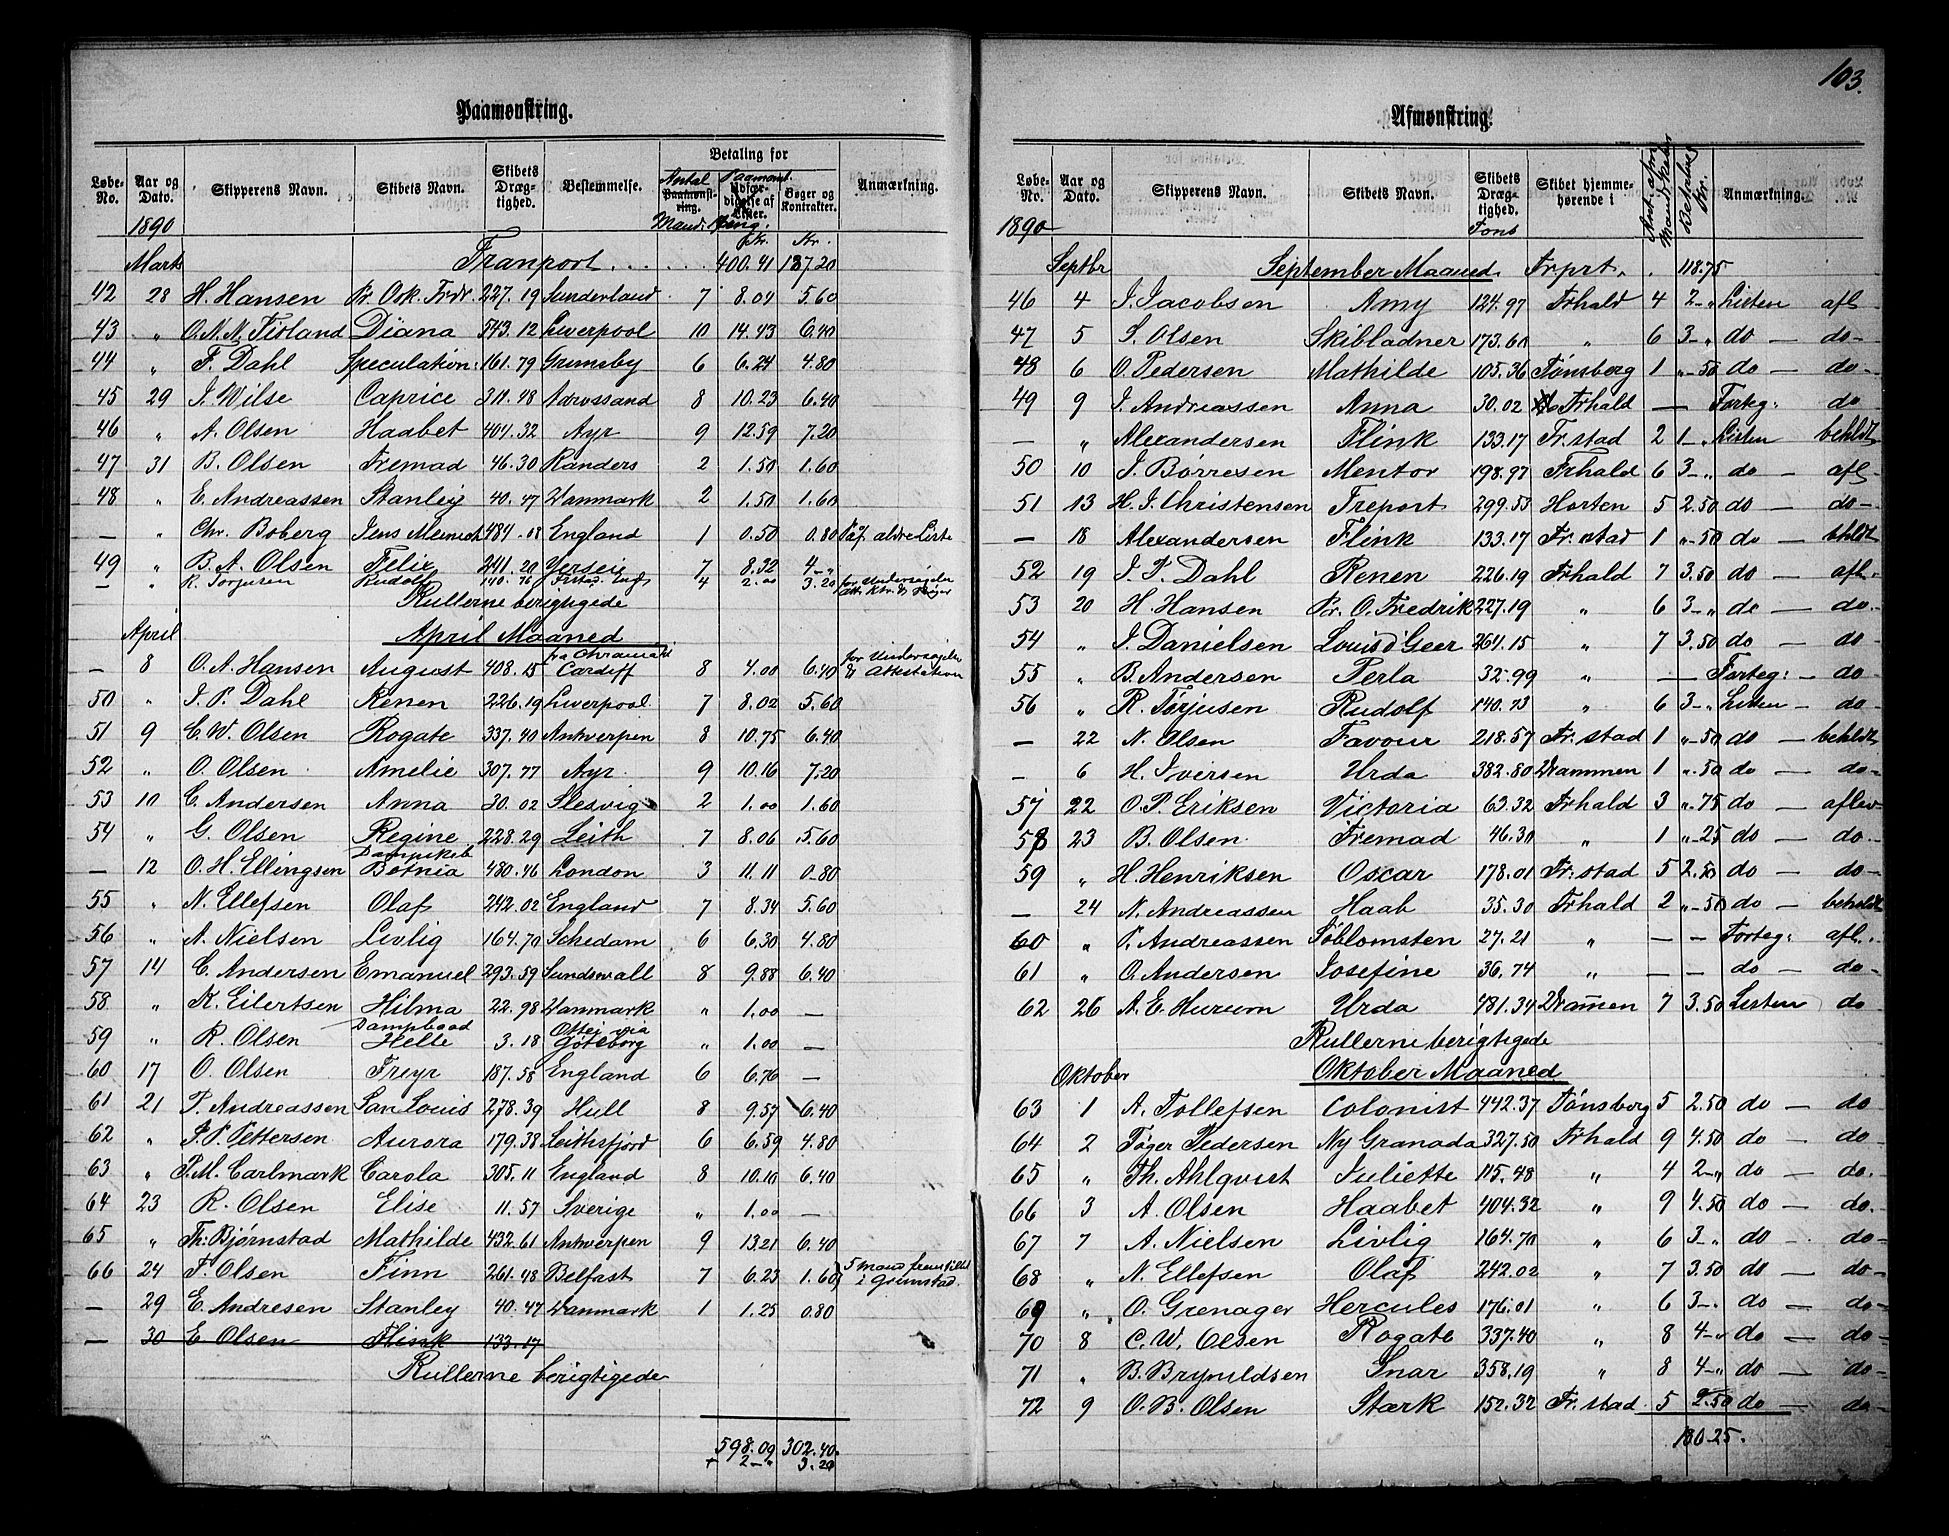 103.
Paamønstring.
Løbe-No. Aar og Dato. Skipperens Navn. Skibets Navn. Skibets Dræg-tighed. Bestemmelse. Antal Paamønst-ring. Mandskab Betaling for Paamønst. Udfær-digelse af Lister. Bøger og Kontrakter. Anmærkning.
1890
Kr. Kr.
Marts Tranport . . . . . . 400.41 187.20
42 28 H. Hansen Pr. Osk. Frdr. 227.19 Sunderland 7 8.04 5.60
43 " O. N. N. Tisland Diana 543.12 Liverpool 10 14.43 6.40
44 " F. Dahl Speculation 161.79 Grimsby 6 6.24 4.80
45 29 J. Wilse Caprice 311.48 Næossand 8 10.23 6.40
46 " A. Olsen Haabet 404.32 Ayr 9 12.59 7.20
47 31 B. Olsen Fremad 46.30 Randers 2 1.50 1.60
48 " E. Andreassen Stanley 40.47 Danmark 2 1.50 1.60
— " Chr. Boberg Jens Meinich 484.08 England 1 0.50 0.80 Paaf. aldre Liste
49 " B. A. Olsen Felix 241.20 Yerseie 7 8.32 4 — "
— " R. Torjusen Rudolf 140.76 Frstad. Engl 4 2.00 3.20 for Undersøgelse
Rullerne berigtigede
April April Maaned
— 8 O. A. Hansen August 408.15 fra Chramald Cardiff 8 4.00 6.40 for Undersøgelse & Attestation
50 " J. P. Dahl Renen 226.19 Liverpool 7 8.02 5.60
51 9 C. W. Olsen Rogate 337.40 Antverpen 8 10.75 6.40
52 " O. Olsen Amelie 307.77 Ayr 9 10.16 7.20
53 10 C. Andersen Anna 30.02 Slesvig 2 1.00 1.60
54 " G. Olsen Regine 228.29 Leith 7 8.06 5.60
— 12 O. H. Ellingsen Dampskib Botnia 480.46 London 3 11.11 0.80
55 " N. Ellefsen Olaf 242.02 England 7 8.34 5.60
56 " A. Nielsen Livlig 164.70 Schedam 6 6.30 4.80
57 14 C. Andersen Emanuel 293.59 Sundswall 8 9.88 6.40
58 " K. Eilertsen Hilma 22.98 Danmark " 1.00 —
59 " R. Olsen Dampbaad Helte 3.18 Göteborg " 1.00 —
60 17 O. Olsen Freyr 187.58 England 6 6.76 —
61 21 P. Andreassen San Louis 278.39 Hull 8 9.57 6.40
62 " P. P. Pettersen Aurora 179.38 Leithsfjord 6 6.59 4.80
63 " P. M. Carlmark Carola 305.11 England 8 10.10 6.40
64 23 R. Olsen Elise 11.57 Sverige " 1.00 —
65 " Th: Bjørnstad Mathilde 432.61 Antverpen 9 13.21 6.40
66 24 F. Olsen Finn 261.48 Belfast 7 6.23 1.60 5 mand fremstillet i Grimstad.
— 29 E. Andresen Stanley 40.47 Danmark 1 1.25 0.80
— 30 E Olsen Flink 133.17
Rullerne berigtigede
598.09 302.40
+ 2 — " 3.20
Afmønstring.
Løbe-No. Aar og Dato. Skipperens Navn. Skibets Navn. Skibets Dræg-tighed. Skibet hjemme-hørende i Ant. afm. Mandskaber Betaling Kr. Anmærkning.
1890 Tons
Septbr September Maaned Trprt. . 118.75
46 4 J. Jacobsen Amy 124.97 Frhald 4 2 — " Listen afl —
47 5 S. Olsen Skibladner 173.60 " 6 3 — " do — do —
48 6 O. Pedersen Mathilde 105.36 Tønsberg 1 " — 50 do — do —
49 9 J. Andreassen Anna 30.02 Frhald — Forteg: do
— " Alexandersen Flink 133.17 Fr. stad 2 1 — " Listen beholdt
50 10 J. Børresen Mentor 198.97 Frhald 6 3 — " do — afl —
51 13 H. J. Christensen Freport 299.53 Horten 5 2.50 do — do —
— 18 Alexandersen Flink 133.17 Fr. stad 1 " — 50 do — bhldt
52 19 J. P. Dahl Renen 226.19 Frhald 7 3.50 do — afl. —
53 20 H. Hansen Pr. O. Fredrik 227.19 " 6 3 — " do — do —
54 " J. Danielsen Louis d Geer 264.15 " 7 3.50 do — do
55 " B. Andersen Perla 32.99 " — Forteg: — do —
56 " R. Tørjusen Rudolf 140.73 " 6 3 — " Listen — do —
— 22 N. Olsen Favour 218.57 Fr. stad 1 " — 50 do — beholdt
— 6 H. Iversen Urda 382.80 Drammen 1 " . 50 do — do —
57 22 O. P. Eriksen Victoria 63.32 Frhald 3 " . 75 do — aflev
58 23 B. Olsen Fremad 46.30 " 1 " — 25 do — do —
59 " H. Henriksen Oscar 178.01 Fr: stad 5 2.50 do — do —
— 24 N. Andreassen Haab 35.30 Frhald 2 " — 50 do — beholdt
60 " P. Andreassen Søblomsten 27.21 " — — Forteg: afl..
61 " O. Andersen Josefine 36.74 " — — do — do —
62 26 A. E. Hurum Urda 481.34 Dramen 7 3.50 Listen do
Rullerne berigtigede
Oktober Oktober Maaned
63 1 A. Tollefsen Colonist 442.37 Tønsberg 5 2.50 do — do
64 2 Tøger Pedersen Ny Granada 327.50 Frhald 9 4.50 do — do
65 " Th. Ahlqvist Juliette 115.48 " 4 2 — " do — do.
66 3 A. Olsen Haabet 404.32 " 9 4.50 do — do.
67 7 A. Nielsen Livlig 164.70 " 6 3 — " do — do —
68 " N. Ellefsen Olaf 242.02 " 7 3.50 do — do
69 " O. Grenager Hercules 176.01 " 6 3 — . do — do —
70 8 C. W. Olsen Rogate 337.40 " 8 4 — " do — do —
71 " B. Brynildsen Snar 358.19 " 8 4 — " do — do —
72 9 O. B. Olsen Stærk 152.32 Fr. stad 5 2.50 do — do —
180.25.